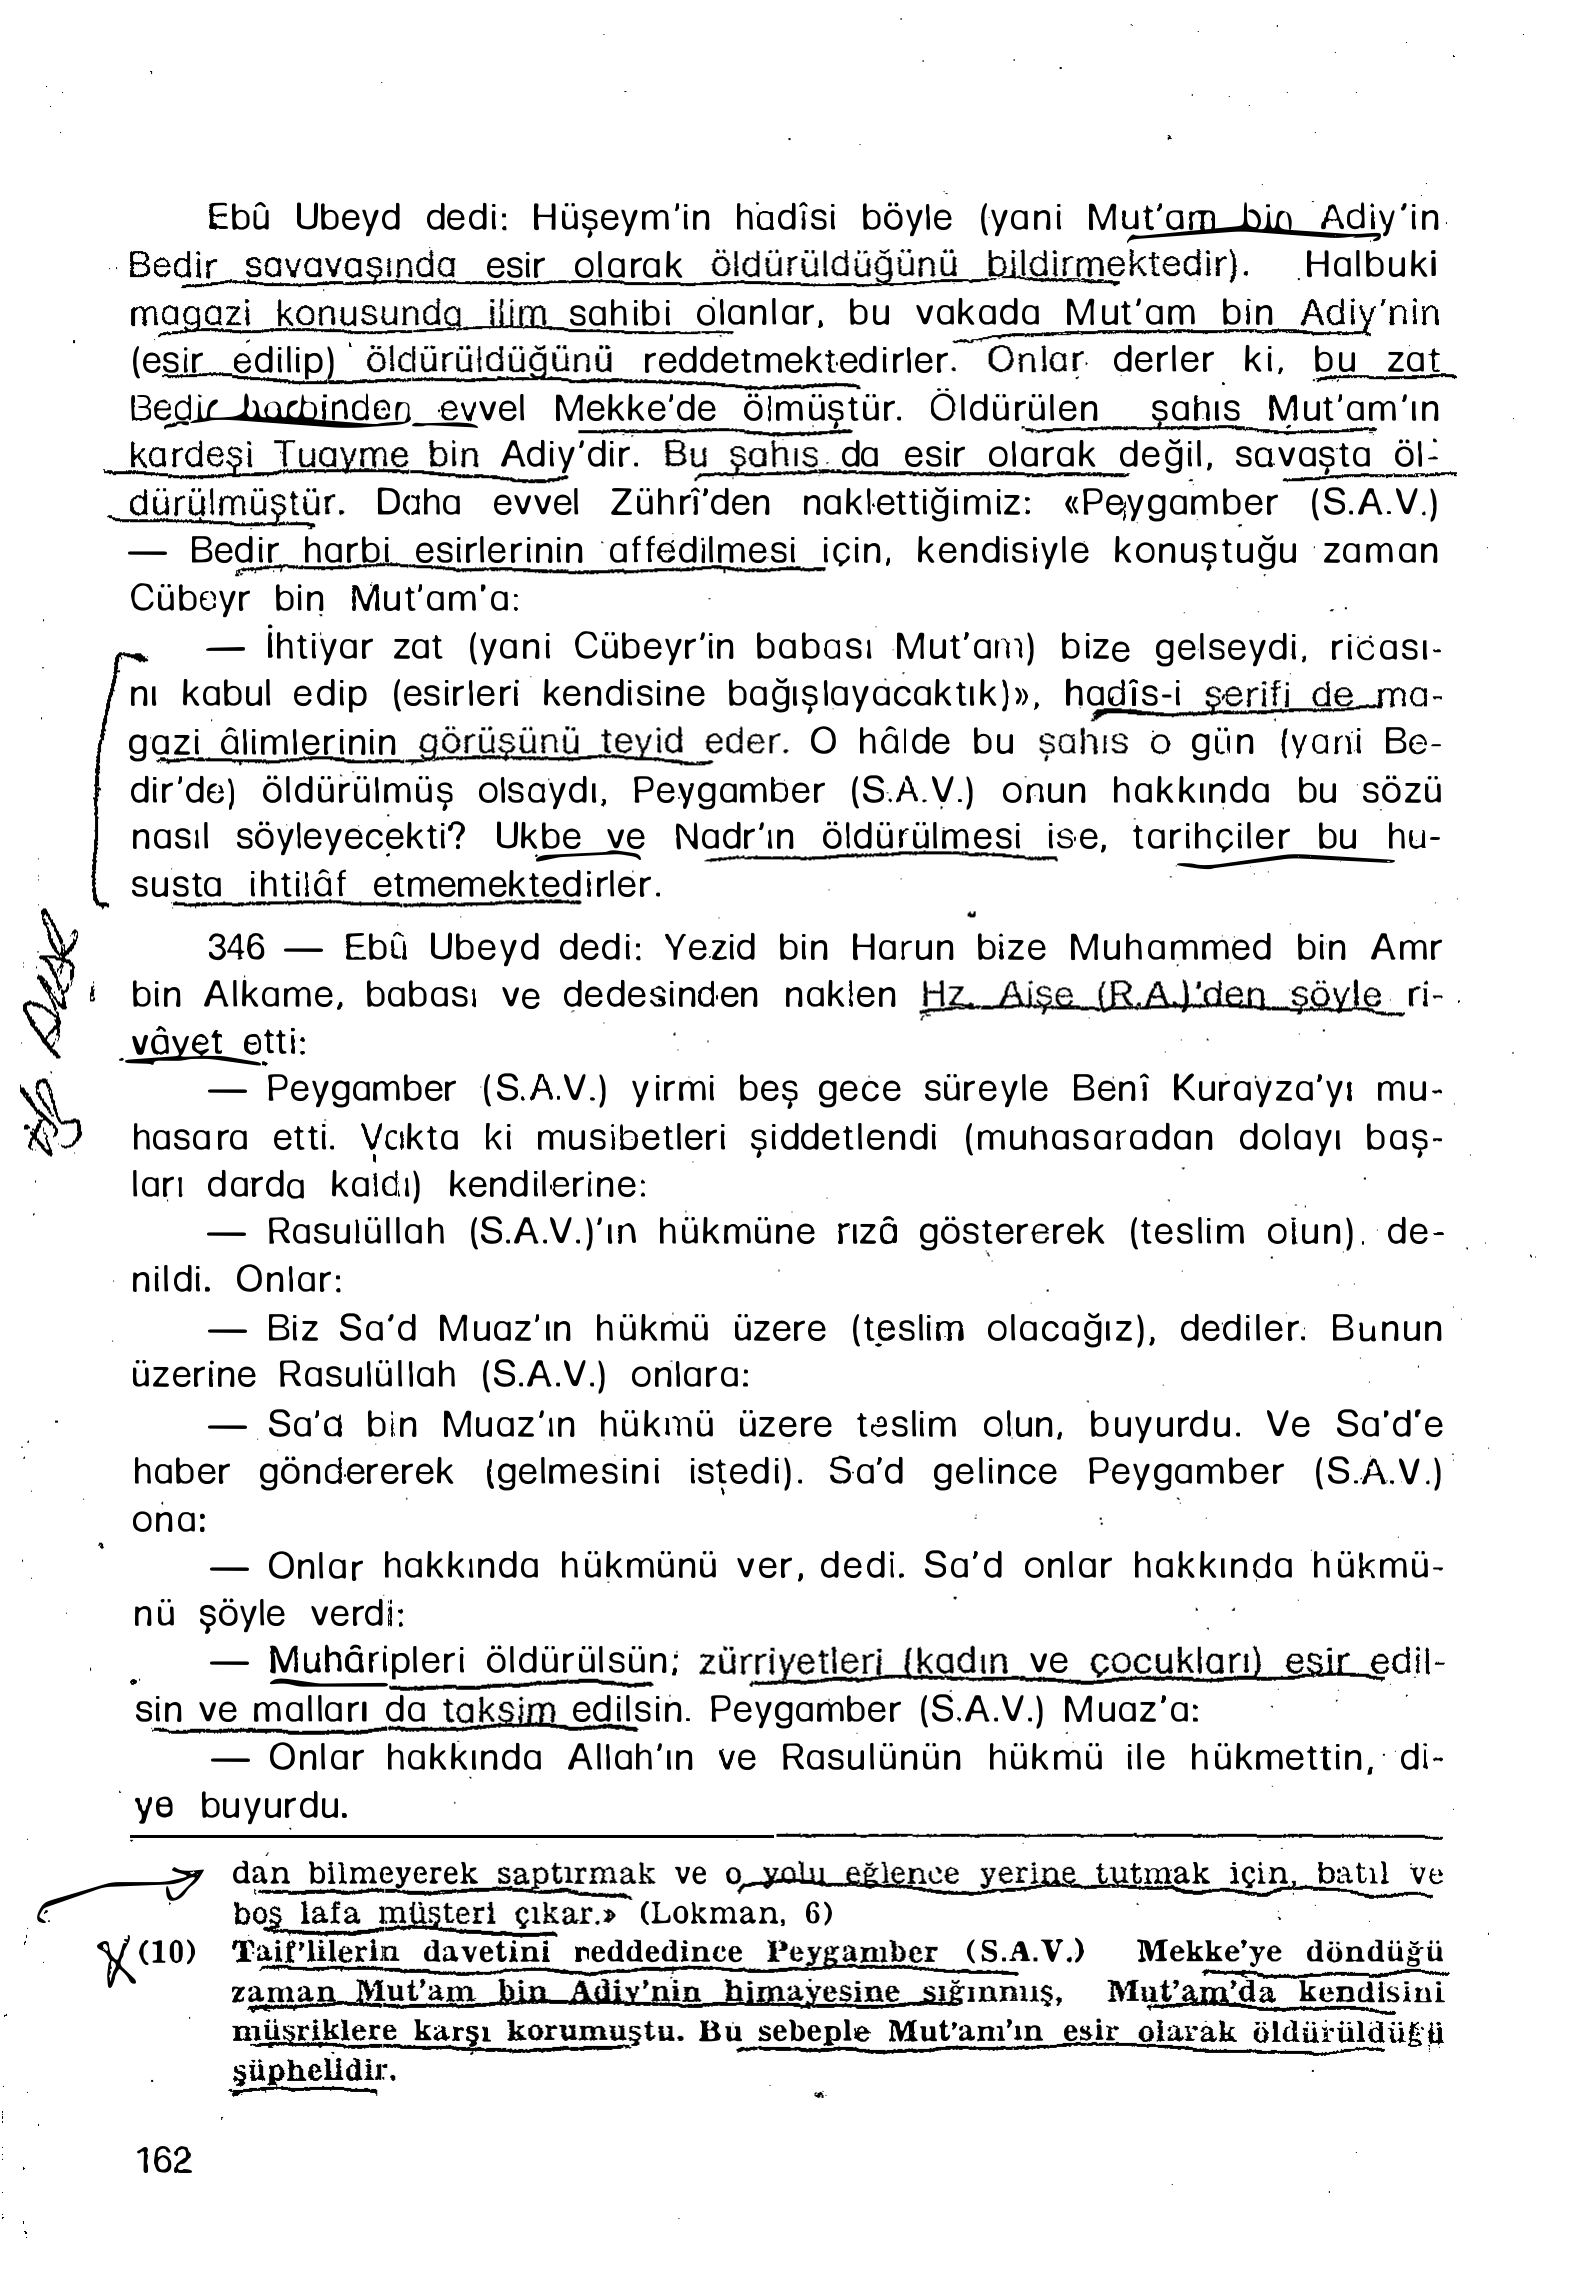 Ebû Ubeyd dedi: Hüşeym'in hadîsi böyle (yani Mut'am bin Adiy'in
Bedir savavaşında esir olarak öldürüldüğünü bildirmektedir). Halbuki
magazi konusunda ilim sahibi olanlar, bu vakada Mut'am bin Adiy'nin
(esir edilip) öldürüldüğünü reddetmektedirler. Onlar derler ki, bu zat
Bedir harbinden evvel Mekke'de ölmüştür. Öldürülen şahıs Mut'am'ın
kardeşi Tuayme bin Adiy'dir. Bu şahıs da esir olarak değil, savaşta öl-
dürülmüştür. Daha evvel Zührî'den naklettiğimiz: «Peygamber (S.A.V.)
— Bedir harbi esirlerinin affedilmesi için, kendisiyle konuştuğu zaman
Cübeyr bin Mut'am'a:
— İhtiyar zat (yani Cübeyr'in babası Mut'am) bize gelseydi, ricası-
nı kabul edip (esirleri kendisine bağışlayacaktık)», hadîs-i şerifi de ma-
gazi âlimlerinin görüşünü teyid eder. O hâlde bu şahıs o gün (yani Be-
dir'de) öldürülmüş olsaydı, Peygamber (S.A.V.) onun hakkında bu sözü
nasıl söyleyecekti? Ukbe ve Nadr'ın öldürülmesi ise, tarihçiler bu hu-
susta ihtilâf etmemektedirler.
346 — Ebû Ubeyd dedi: Yezid bin Harun bize Muhammed bin Amr
bin Alkame, babası ve dedesinden naklen Hz. Aişe (R.A.)'den şöyle ri-
vâyet etti:
— Peygamber (S.A.V.) yirmi beş gece süreyle Benî Kurayza'yı mu-
hasara etti. Vakta ki musibetleri şiddetlendi (muhasaradan dolayı baş-
ları darda kaldı) kendilerine:
— Rasulüllah (S.A.V.)'ın hükmüne rızâ göstererek (teslim olun), de-
nildi. Onlar:
— Biz Sa'd Muaz'ın hükmü üzere (teslim olacağız), dediler. Bunun
üzerine Rasulüllah (S.A.V.) onlara:
— Sa'd bin Muaz'ın hükmü üzere teslim olun, buyurdu. Ve Sa'd'e
haber göndererek (gelmesini istedi). Sa'd gelince Peygamber (S.A.V.)
ona:
— Onlar hakkında hükmünü ver, dedi. Sa'd onlar hakkında hükmü-
nü şöyle verdi:
— Muhâripleri öldürülsün; zürriyetleri (kadın ve çocukları) esir edil-
sin ve malları da taksim edilsin. Peygamber (S.A.V.) Muaz'a:
— Onlar hakkında Allah'ın ve Rasulünün hükmü ile hükmettin, di-
ye buyurdu.
dan bilmeyerek saptırmak ve o yolu eğlence yerine tutmak için, batıl ve
boş lafa müşteri çıkar.» (Lokman, 6)
(10) Taif'lilerin davetini reddedince Peygamber (S.A.V.) Mekke'ye döndüğü
zaman Mut'am bin Adiy'nin himayesine sığınmış, Mut'am'da kendisini
müşriklere karşı korumuştu. Bu sebeple Mut'am'ın esir olarak öldürüldüğü
şüphelidir.
162